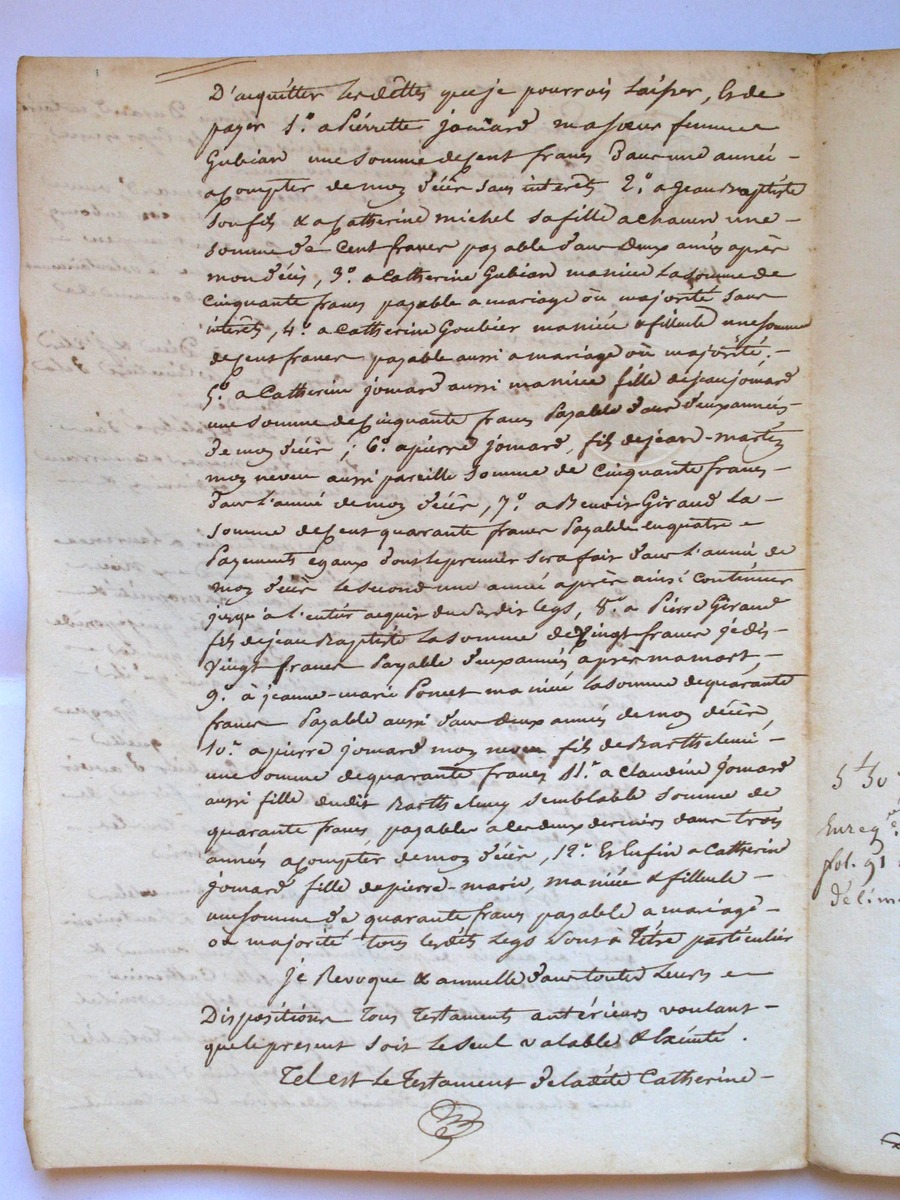 D'acquitter les dêttes que je pourrois laisser, & de
payer 1.º a Pierrette jomard ma sœur femme
Gubian une somme de Cent francs dans une année -
a Compter de mon décès sans interêts 2.º a jean Baptiste
son fils & a Catherine michel sa fille a chacun une -
somme de Cent francs payable dans deux anées après
mon décès, 3.º a Catherine Gubian ma niece la somme de
cinquante francs payable a mariage ou majorité sans
interêts, 4.º a Catherine Goubier ma niéce & fillieule une somme
de Cent francs payable aussi a mariage où majorité. -
5.º a Catherine jomard aussi ma niéce fille de jean jomard
une somme de Cinquante francs Payable dans deux années -
de mon décès ; 6.º a pierre jomard, fils de jean-martin
mon neveu aussi pareille somme de cinquante francs -
dans l'année de mon décès, 7.º a Benoit Giraud la -
somme de Cent quarante francs Payable en quatre
Payements égaux dont le premier sera fait dans l'année de
mon décès le second une année après ainsi continuer
jusqu'a l'entier acquit du susdit legs, 8.º a Pierre Giraud
fils de jean Baptiste la somme de Vingt francs je dis -
Vingt francs Payable deux années après ma mort, -
9.º à jeanne-marie Poncet ma niéce la somme de quarante
francs Payable aussi dans deux années de mon décès,
10.º a pierre jomard mon neveu fils de Barthelemi -
une somme de quarante francs 11.º a Claudine jomard
aussi fille dudit Barthelemy semblable somme de
quarante francs payables a ces deux derniers dans trois
années a Compter de mon décès, 12.º Et Enfin a Catherine
jomard fille de pierre-marie, ma niéce & fillieule -
une somme de quarante francs payable a mariage -
où majorité tous lesdits legs sont à titre particulier
je Revoque & annulle dans toutes leurs
Dispositions tous testaments antérieurs voulant -
que le present soit le seul valable & Exécuté.
Tel est le Testament de ladite Catherine -
Enreg
fol. 91